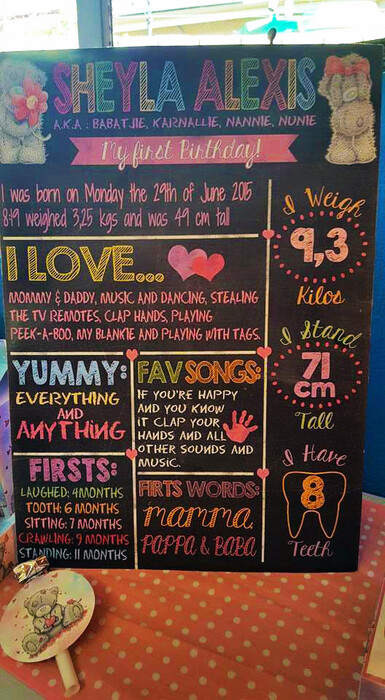 SHEYLA ALEXIS
A.K.A : BABATJIE, KARNALLIE, NANNIE, NUNIE
My first Birthday!
I was born on Monday the 29th of June 2015
8:19 weighed 3,25 kgs and was 49 cm tall
I LOVE...
MOMMY & DADDY, MUSIC AND DANCING, STEALING
THE TV REMOTES, CLAP HANDS, PLAYING
PEEK-A-BOO, MY BLANKIE AND PLAYING WITH TAGS.
YUMMY:
EVERYTHING
AND
ANYTHING
FAV SONGS:
IF YOU'RE HAPPY
AND YOU KNOW
IT CLAP YOUR
HANDS AND ALL
OTHER SOUNDS AND
MUSIC.
FIRSTS:
LAUGHED: 4MONTHS
TOOTH: 6 MONTHS
SITTING: 7 MONTHS
CRAWLING: 9 MONTHS
STANDING: 11 MONTHS
FIRTS WORDS:
mamma,
PAPPA & BABA
I Weigh
9,3
Kilos
I Stand
71
cm
Tall
I Have
8
Teeth